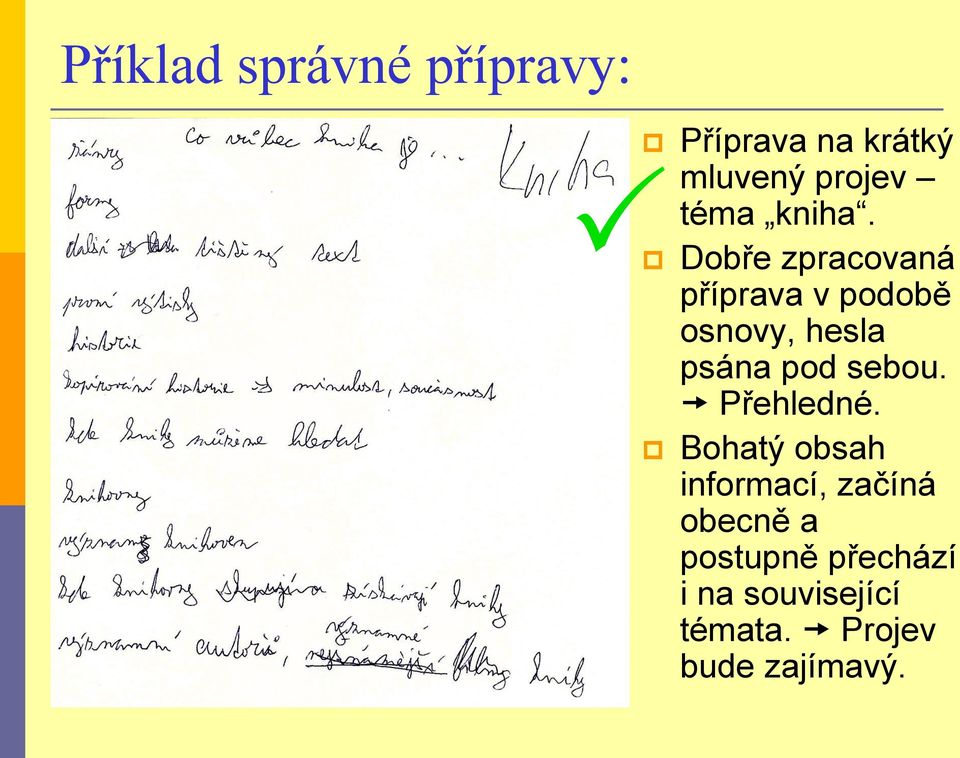 Příklad správné přípravy:
Co vůbec kniha je...
Kniha
žánry
formy
další tištěný text
první výtisky
historie
kopírování historie → minulost, současnost
kde knihy můžeme hledat
knihovny
význam knihoven
kde knihovny získávají knihy
významní autoři, významné knihy
Příprava na krátký
mluvený projev –
téma „kniha“.
Dobře zpracovaná
příprava v podobě
osnovy, hesla
psána pod sebou.
➞ Přehledné.
Bohatý obsah
informací, začíná
obecně a
postupně přechází
i na související
témata. ➞ Projev
bude zajímavý.